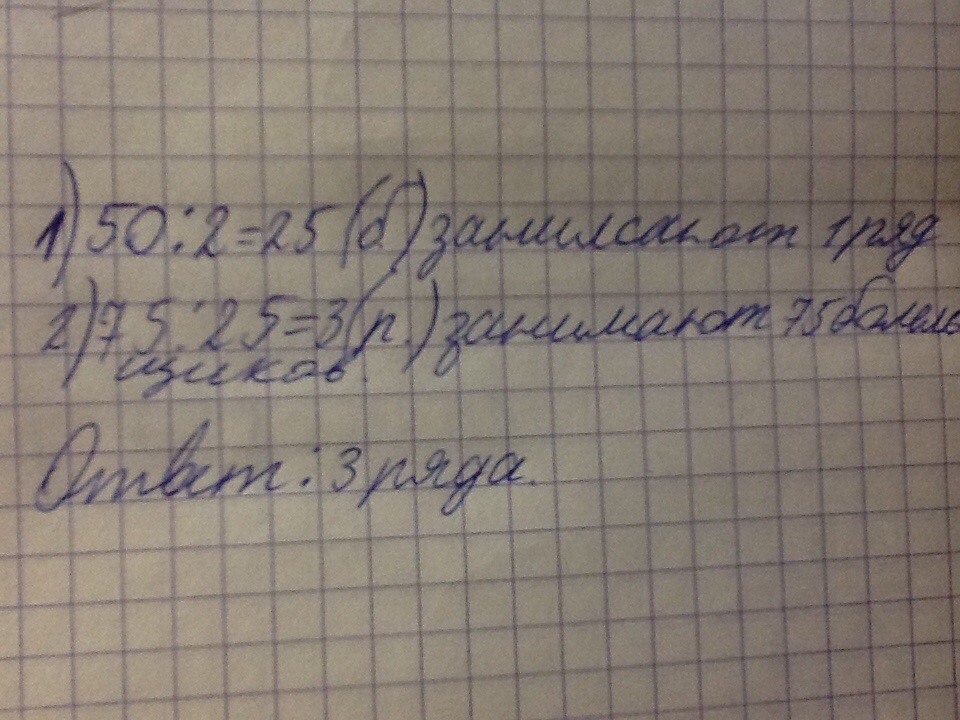 1) 50:2=25 (б.) занимают 1 ряд
2) 75:25=3(р.) занимают 75 болель
щиков.
Ответ: 3 ряда.